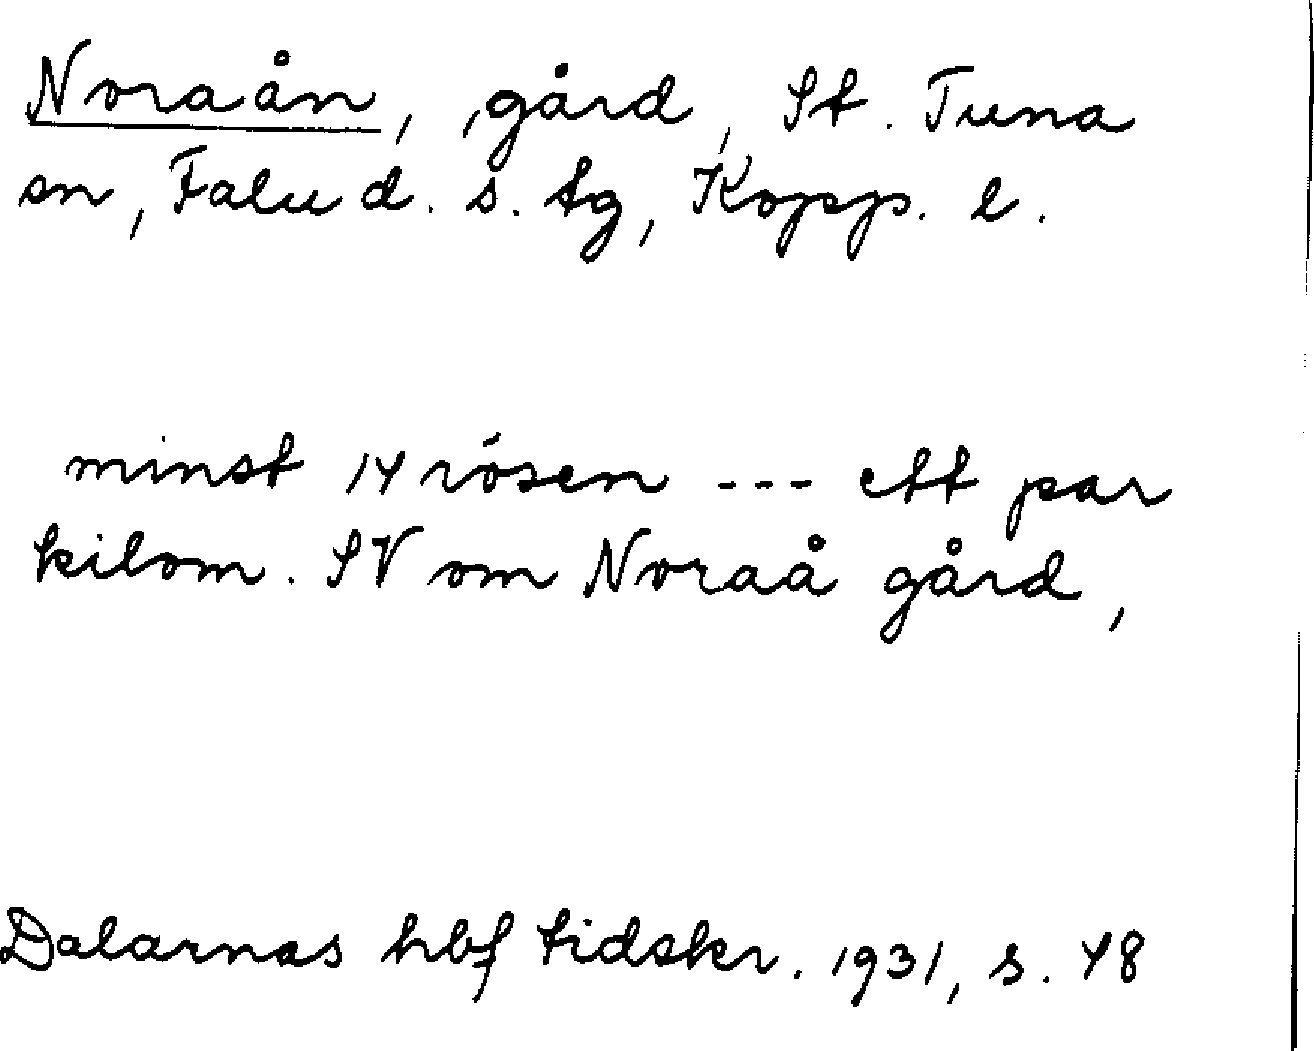 Noraån, gård, St. Tuna
sn, Falu d. s. tg, Kopp. l.
minst 14 rösen --- ett par
kilom. SV om Noraå gård,
Dalarnas hbf tidskr. 1931, s. 48